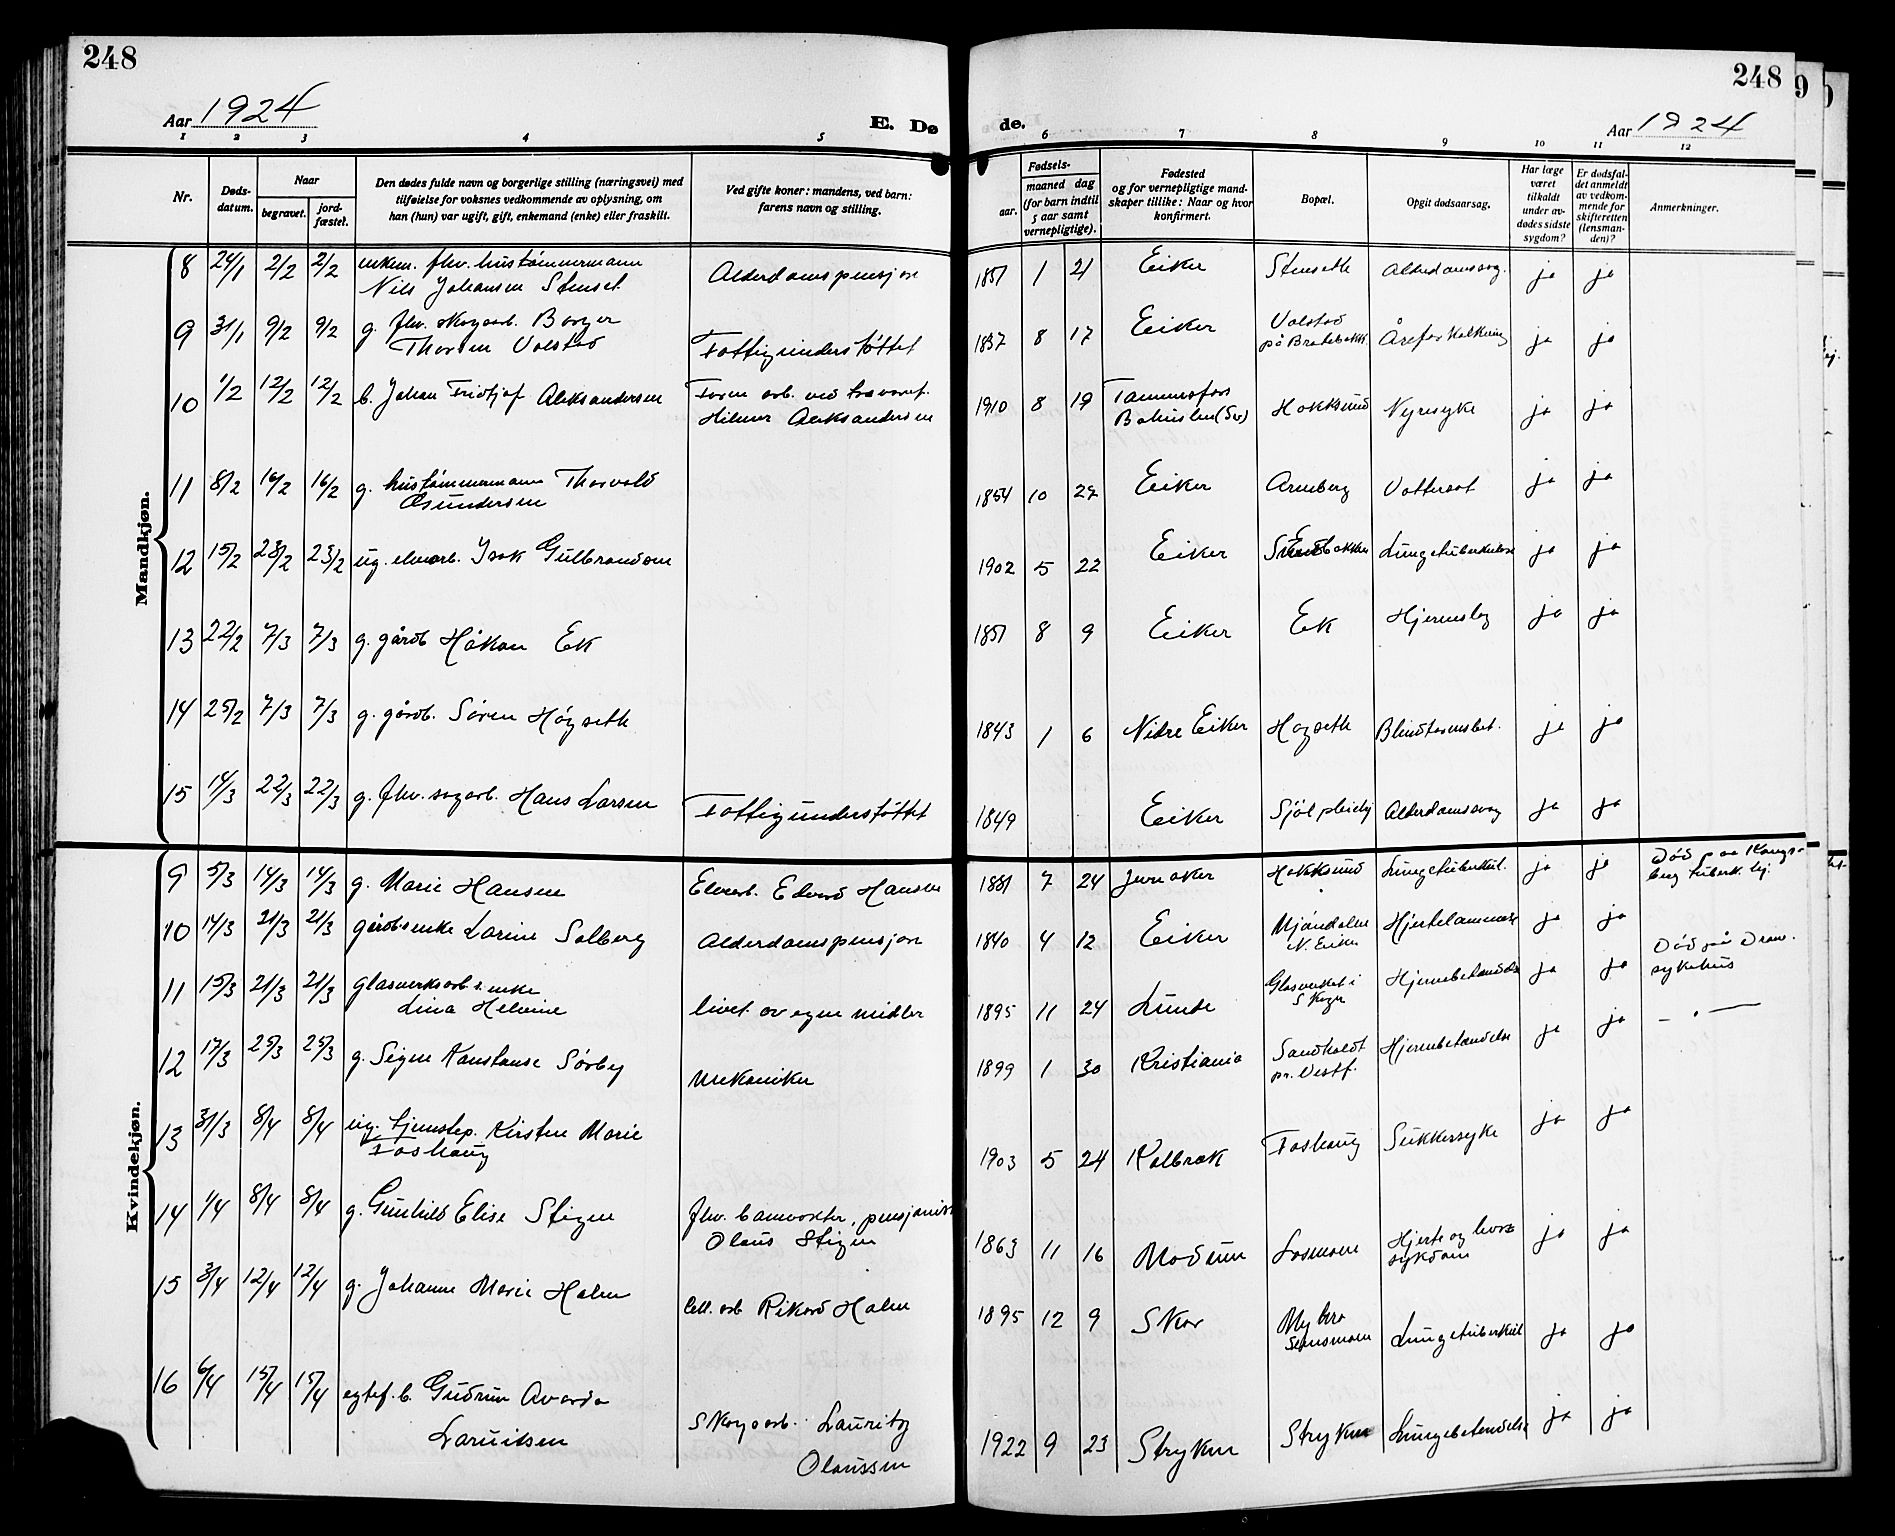 248
248
Aar 1924
E. Dø
de.
Aar 1924
1 2 3 4 5
6 7 8 9 10 11 12
Nr.
Døds-
datum.
Naar
begravet.
jord-
fæstet.
Den dødes fulde navn og borgerlige stilling (næringsvei) med
tilføielse for voksnes vedkommende av oplysning, om
han (hun) var ugift, gift, enkemand (enke) eller fraskilt.
Ved gifte koner: mandens, ved barn:
farens navn og stilling.
Fødsels-
aar.
maaned dag
(for barn indtil
5 aar samt
vernepligtige).
Fødested
og for vernepligtige mand-
skaper tillike: Naar og hvor
konfirmert.
Bopæl.
Opgit dødsaarsag.
Har læge
været
tilkaldt
under av-
dødes sidste
sygdom?
Er dødsfal-
det anmeldt
av vedkom-
mende for
skifteretten
(lensman-
den)?
Anmerkninger.
Mandkjøn.
8 24/1 2/2 2/2 enkem. fhv. hustømmermann
Nils Johansen Stenset Alderdomspensjon 1851 1 21 Eiker Stenseth ja ja
9 31/1 9/2 9/2 g. fhv. skogarb. Borger
Thorsen Valstad Fattigunderstøttet 1837 8 17 Eiker Valstad
Åreforkalkning ja ja
10 1/2 12/2 12/2 b. Johan Fridtjof Aleksandersen
Hilmer Aleksandersen 1910 8 19 Hokksund Nyresyke ja ja
11 8/2 16/2 16/2 g. hustømmermann Thorvald
Gsundersen 1854 10 Eiker Vattersot ja ja
12 15/2 23/2 23/2 ug. elvearb. Isak Gulbrandsen 1902 5 22 Eiker Lungetuberkulose ja ja
13 22/2 7/3 7/3 g. gårdb Håkon Ek 1851 8 9 Eiker Ek Hjerneslag ja ja
14 25/2 7/3 7/3 g. gårdb. Søren Høgseth 1843 1 6 Nedre Eiker Hogseth Blindtarmsbet. ja ja
15 14/3 22/3 22/3 g. fhv. sagarb. Hans Larsen Fattigunderstøttet 1849 Eiker ja ja
Kvindekjøn.
9 5/3 14/3 14/3 g. Marie Hansen Elvearb. Edvard Hansen 1881 7 24 Jevnaker Hokksund Lungetuberkul. ja ja Død paa Kongs-
berg tuberk. hj.
10 14/3 21/3 21/3 gårdb.enke Larine Solberg Alderdomspensjon 1840 4 12 Eiker Mjøndalen
N. Eiker Hjertelammelse ja ja
11 15/3 21/3 21/3 glasverksarb.s enke
Lina Helmine levet av egne midler 1895 11 24 Lunde Glasverket i
Hjernebetændelse ja ja Død på Dram.
sykehus
12 17/3 25/3 25/3 g. Signe Konstanse Sørby mekaniker 1899 1 30 Kristiania
pr. Vestf. Hjernebetændelse ja ja — " —
13 31/3 8/4 8/4 ug. tjenstep. Kirsten Marie
Foshaug 1903 5 24 Kolbrek Foshaug Sukkersyke ja ja
14 1/4 8/4 8/4 g. Gunhild Elise Stigen fhv. banevokter, pensjonist
Olaus Stigen 1863 11 16 Modum Losmoen Hjerte og
sykdom ja ja
15 3/4 12/4 12/4 g. Johanne Marie Holen Cell. arb Rikard Holen 1895 12 9 Skar Lungetuberkul ja ja
16 6/4 15/4 15/4 egtef. b. Gudrun Avarda
Lauritsen Skogsarb. Lauritz
Olaussen 1922 9 23 Stryken Stryken Lungebetendelse ja ja